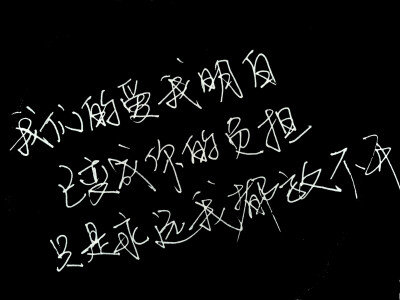 我们的爱我明白
已变成你的负担
只是永远我都放不开